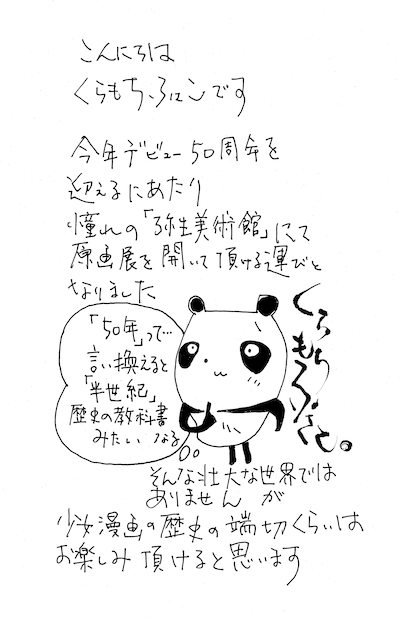 こんにちは
くらもちふさこです
今年デビュー50周年を
迎えるにあたり
憧れの「弥生美術館」にて
原画展を開いて頂ける運びと
なりました
「50年」って…
言い換えると
「半世紀」
歴史の教科書
みたいになる
くらもちふさこ。
そんな壮大な世界では
ありませんが
少女漫画の歴史の端切くらいは
お楽しみ頂けると思います